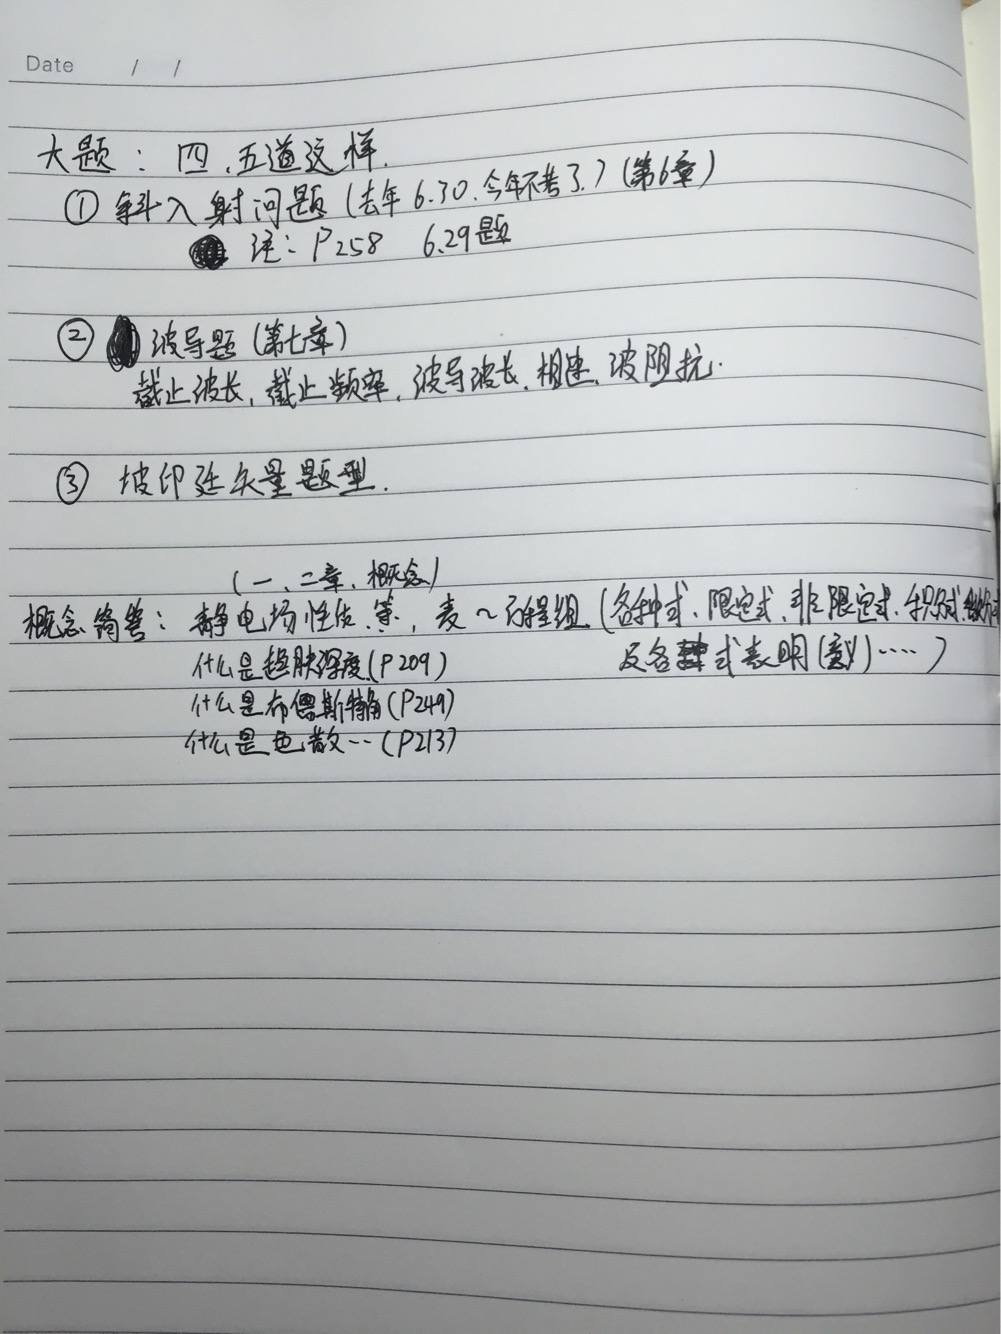 Date / /
大题：四、五道这样.
① 斜入射问题（去年6.30.今年不考了.）(第6章)
注：P258 6.29题
② 波导题（第七章）
截止波长，截止频率，波导波长，相速，波阻抗.
③ 坡印廷矢量题型.
（一、二章、概念）
概念简答：静电场性质.等，麦～方程组（各种式、限定式、非限定式、积分式、微分式
及各式表明（意义）……）
什么是趋肤深度（P209）
什么是布儒斯特角（P249）
什么是色散…（P213）